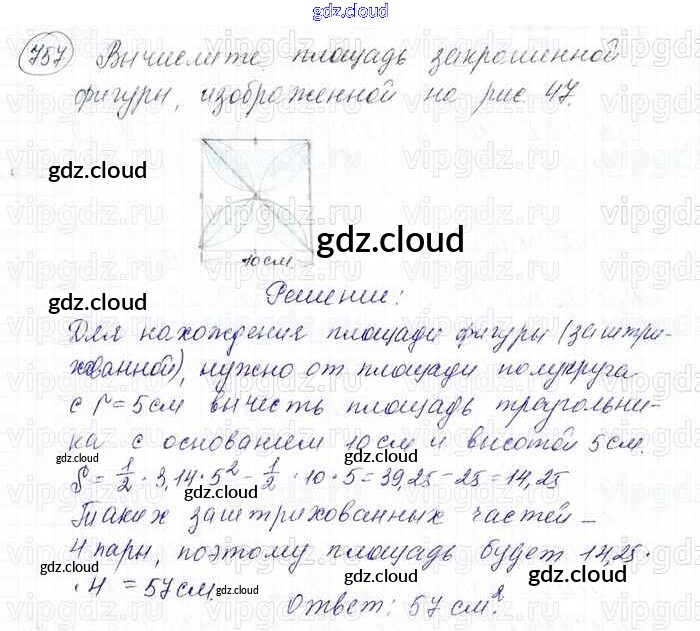 gdz.cloud
757 Вычислите площадь закрашенной
фигуры, изображенной на рис 47.
gdz.cloud
gdz.cloud
10см.
Решение:
gdz.cloud
Для нахождения площади фигуры (заштри-
хованной), нужно от площади полукруга
с r=5см вычесть площадь треугольни-
ка с основанием 10см и высотой 5см.
gdz.cloud
gdz.cloud
S = 1/2 · 3,14 · 5² - 1/2 · 10 · 5 = 39,25 - 25 = 14,25
gdz.cloud
Таких заштрихованных частей -
4 пары, поэтому площадь будет 14,25 ·
gdz.cloud
gdz.cloud
gdz.cloud
· 4 = 57см.
Ответ: 57 см².